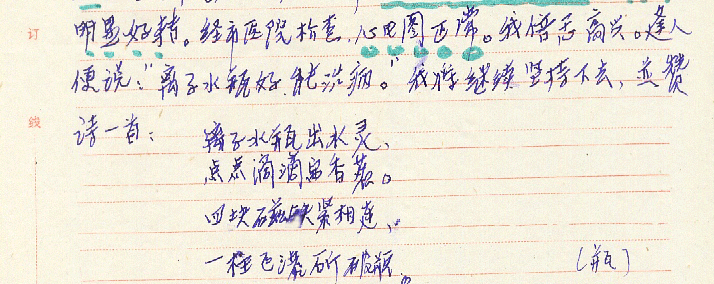 订
明显好转。经市医院检查,心电图正常。我倍感高兴。逢人
便说:"离子水瓶好,能治病。"我准继续坚持下去,并赞
线
诗一首:
离子水瓶出水灵,
点点滴滴留香蕊。
四块磁块紧相连、
一柱飞瀑所破瓶。(瓶)